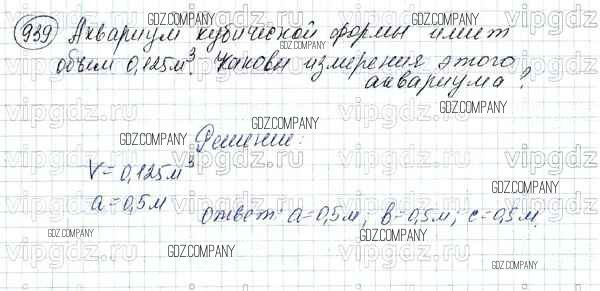 939 Аквариум кубической формы имеет
объём 0,125м³. Каковы измерения этого
аквариума?
Решение:
V=0,125м³
a=0,5м
Ответ: a=0,5м; b=0,5м; c=0,5м.
GDZ.COMPANY
vipgdz